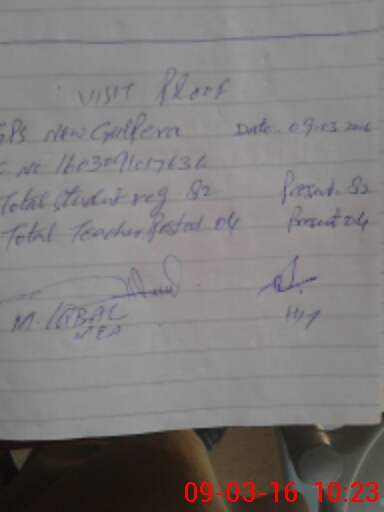 VISIT Proof
GPS New Gulpera Date. 09.03.2016
Total Student reg. 82 Present. 82
Total Teacher Posted. 04 Present 04
M. IQBAL
MEA
09-03-16 10:23